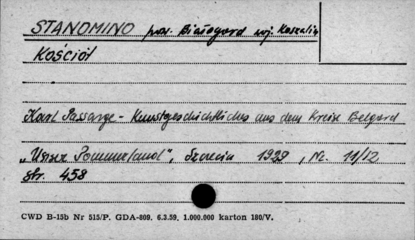 STANOMINO pow. Białogard woj. Koszalin
Kościół
Karl Passarge - Kunstgeschichtliches aus dem Kreise Belgard
„Unser Pommerland", Szczecin 19 , Nr. 11/12
str. 458
CWD B-15b Nr 515/P. GDA-809. 6.3.59. 1.000.000 karton 180/V.